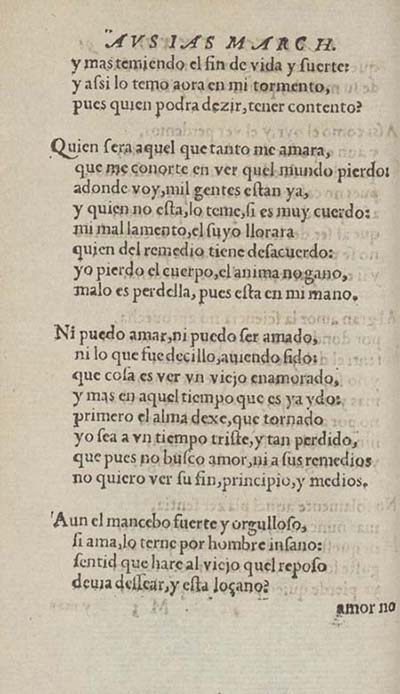 AVSIAS MARCH.
y mas temiendo el fin de vida y suerte:
y assi lo temo aora en mi tormento,
pues quien podra dezir, tener contento?
Quien sera aquel que tanto me amara,
que me conorte en ver quel mundo pierdo:
adonde voy, mil gentes estan ya,
y quien no esta, lo teme, si es muy cuerdo:
mi mal lamento, el suyo llorara
quien del remedio tiene desacuerdo:
yo pierdo el cuerpo, el anima no gano,
malo es perdella, pues esta en mi mano.
Ni puedo amar, ni puedo ser amado,
ni lo que fue decillo, auiendo sido:
que cosa es ver vn viejo enamorado,
y mas en aquel tiempo que es ya ydo:
primero el alma dexe, que tornado
yo sea a vn tiempo triste, y tan perdido,
que pues no busco amor, ni a sus remedios
no quiero ver su fin, principio, y medios.
Aun el mancebo fuerte y orgulloso,
si ama, lo terne por hombre insano:
sentid que hare al viejo quel reposo
deuia dessear, y esta loçano?
amor no